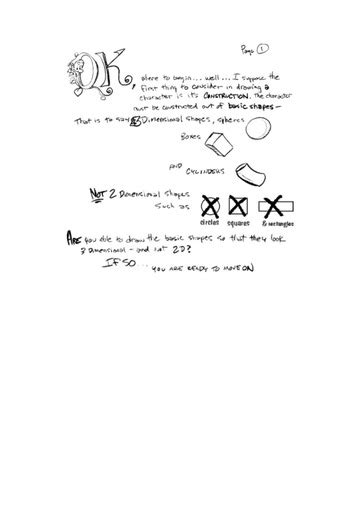 Page 1
OK, where to begin... well... I suppose the
first thing to consider in drawing a
character is its CONSTRUCTION. The character
must be constructed out of basic shapes-
That is to say 3 Dimensional shapes, spheres
BOXES
AND CYLINDERS
NOT 2 Dimensional shapes
Such as
circles squares & rectangles
ARE you able to draw the basic shapes so that they look
3 Dimensional - and not 2D?
IF SO... YOU ARE READY TO MOVE ON